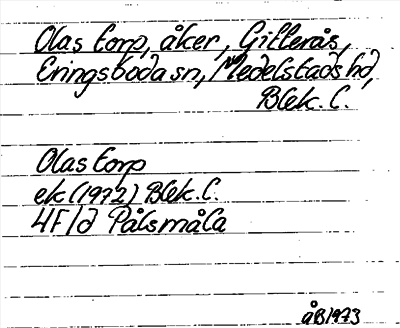 Olas torp, åker, Gillerås,
Eringsboda sn, Medelstads hd,
Blek. l.
Olas torp
ek (1972) Blek. l.
4F/d Pålsmåla
åB 1973